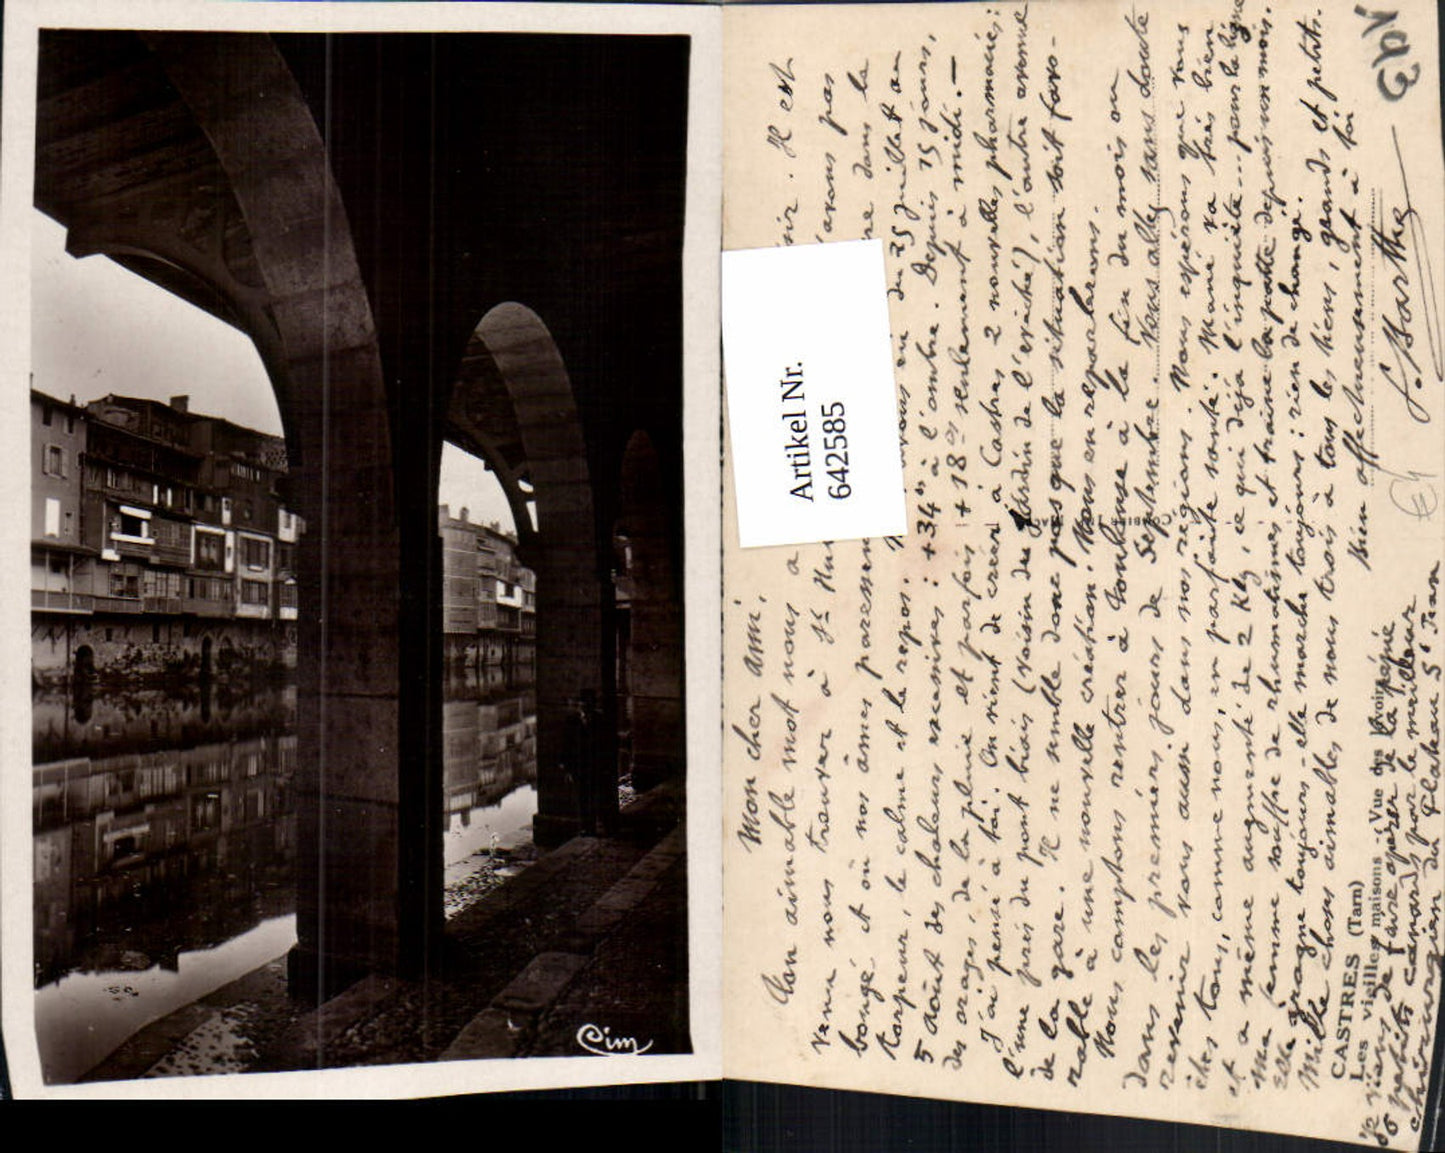 Cim
Artikel Nr.
642585
Mon cher ami,
Ton aimable mot nous a
venu nous trouver à St
bougé et où nos âmes paressent dans la
torpeur, le calme et le repos. du 25 juillet au
5 août des chaleurs excessives : +34° à l'ombre. Depuis 15 jours,
des orages, de la pluie et parfois + 18° seulement à midi. —
J'ai pensé à toi. On vient de créer à Castres 2 nouvelles pharmacies:
l'une près du pont biais (voisin du jardin de l'évêché), l'autre
de la gare. Il ne semble donc pas que la situation soit favo-
rable à une nouvelle création. Nous en reparlerons.
Nous comptons rentrer à Toulouse à la fin du mois ou
dans les premiers jours de Septembre. Vous allez sans doute
revenir vous aussi dans nos régions. Nous espérons que vous
êtes tous, comme nous, en parfaite santé. Mamé va très bien
et a même augmenté de 2 Kg, ce qui déjà l'inquiète... pour la ligne
Ma femme souffre de rhumatismes et traîne la patte depuis un mois.
Elle grogne toujours - elle marche toujours : rien de changé.
Mille choses aimables de nous trois à tous les tiens, grands et petits.
Bien affectueusement à toi
Barthe
CASTRES (Tarn)
Les vieilles maisons - Vue des
Je viens de faire opérer de la
6 petits canards par le meilleur
chirurgien du Plateau St Jean